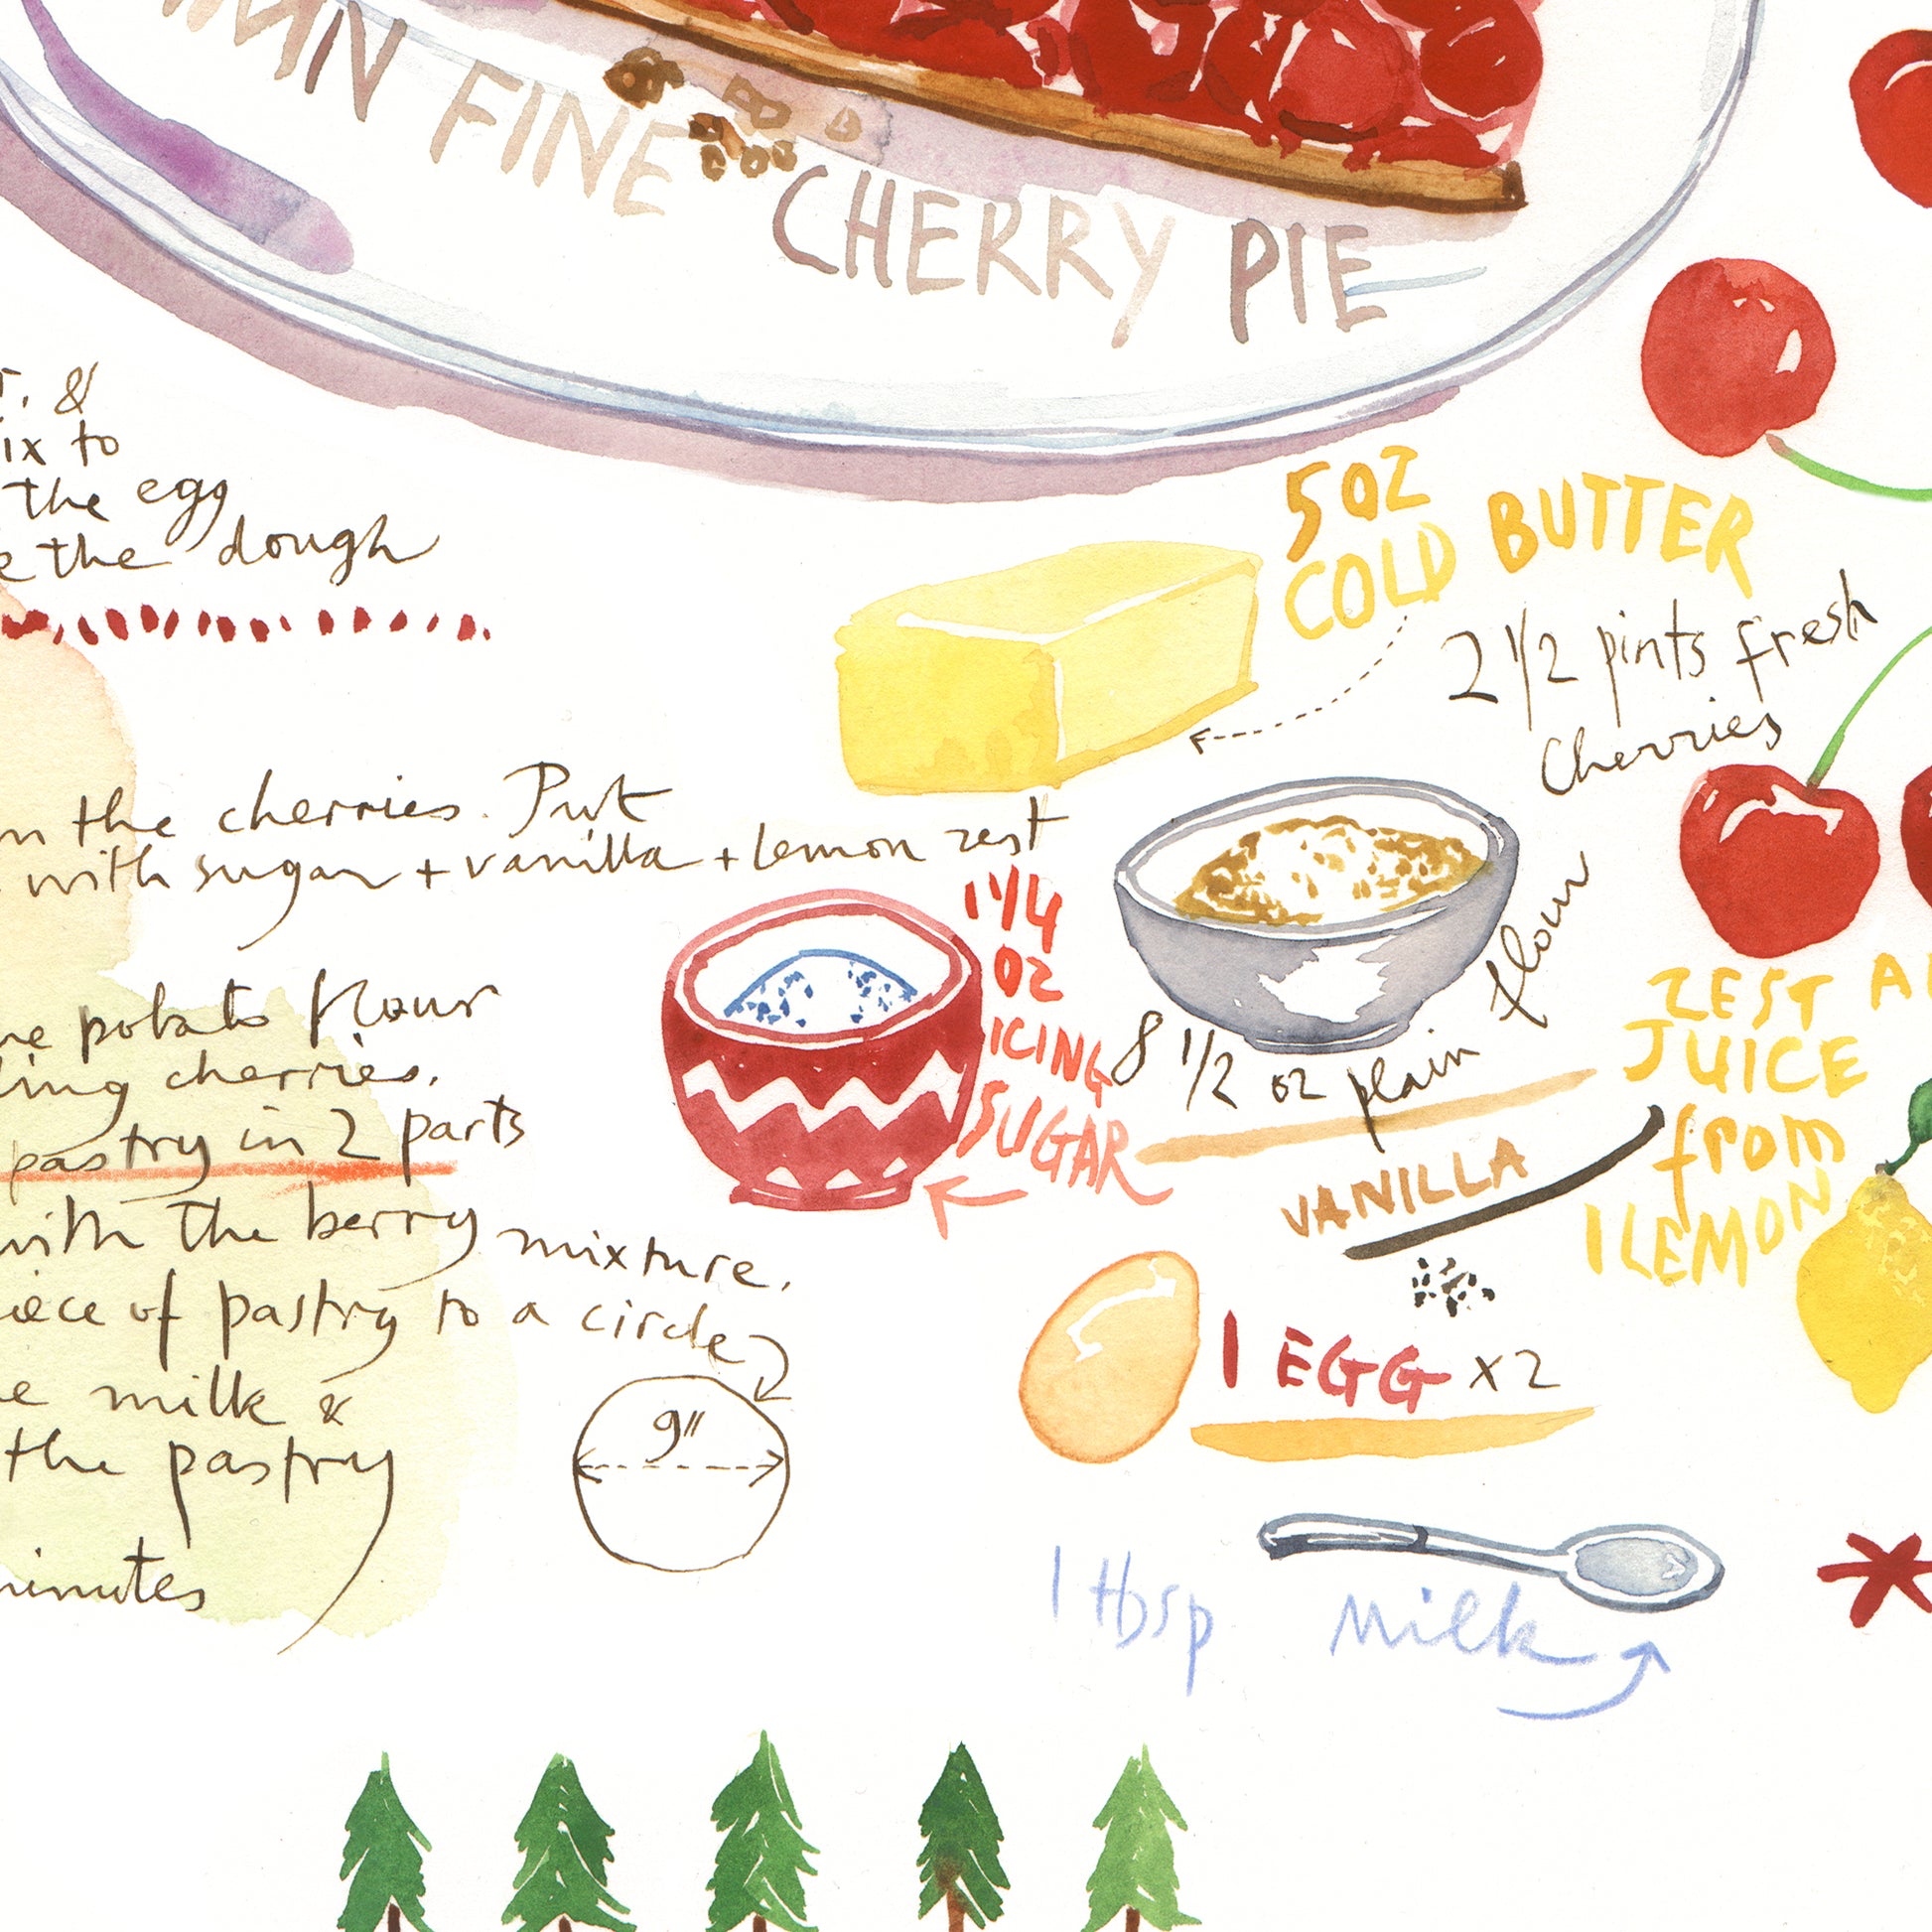 FINE CHERRY PIE
&
to
the egg
the dough
the cherries. Put
with sugar + vanilla + lemon zest
potato flour
cherries.
pastry in 2 parts
with the berry mixture.
of pastry to a circle
9"
milk &
the pastry
5 OZ
COLD BUTTER
2 1/2 pints fresh
Cherries
1 1/4
OZ
ICING
SUGAR
8 1/2 oz plain flour
VANILLA
ZEST
JUICE
from
1 LEMON
1 EGG x2
1 tbsp milk